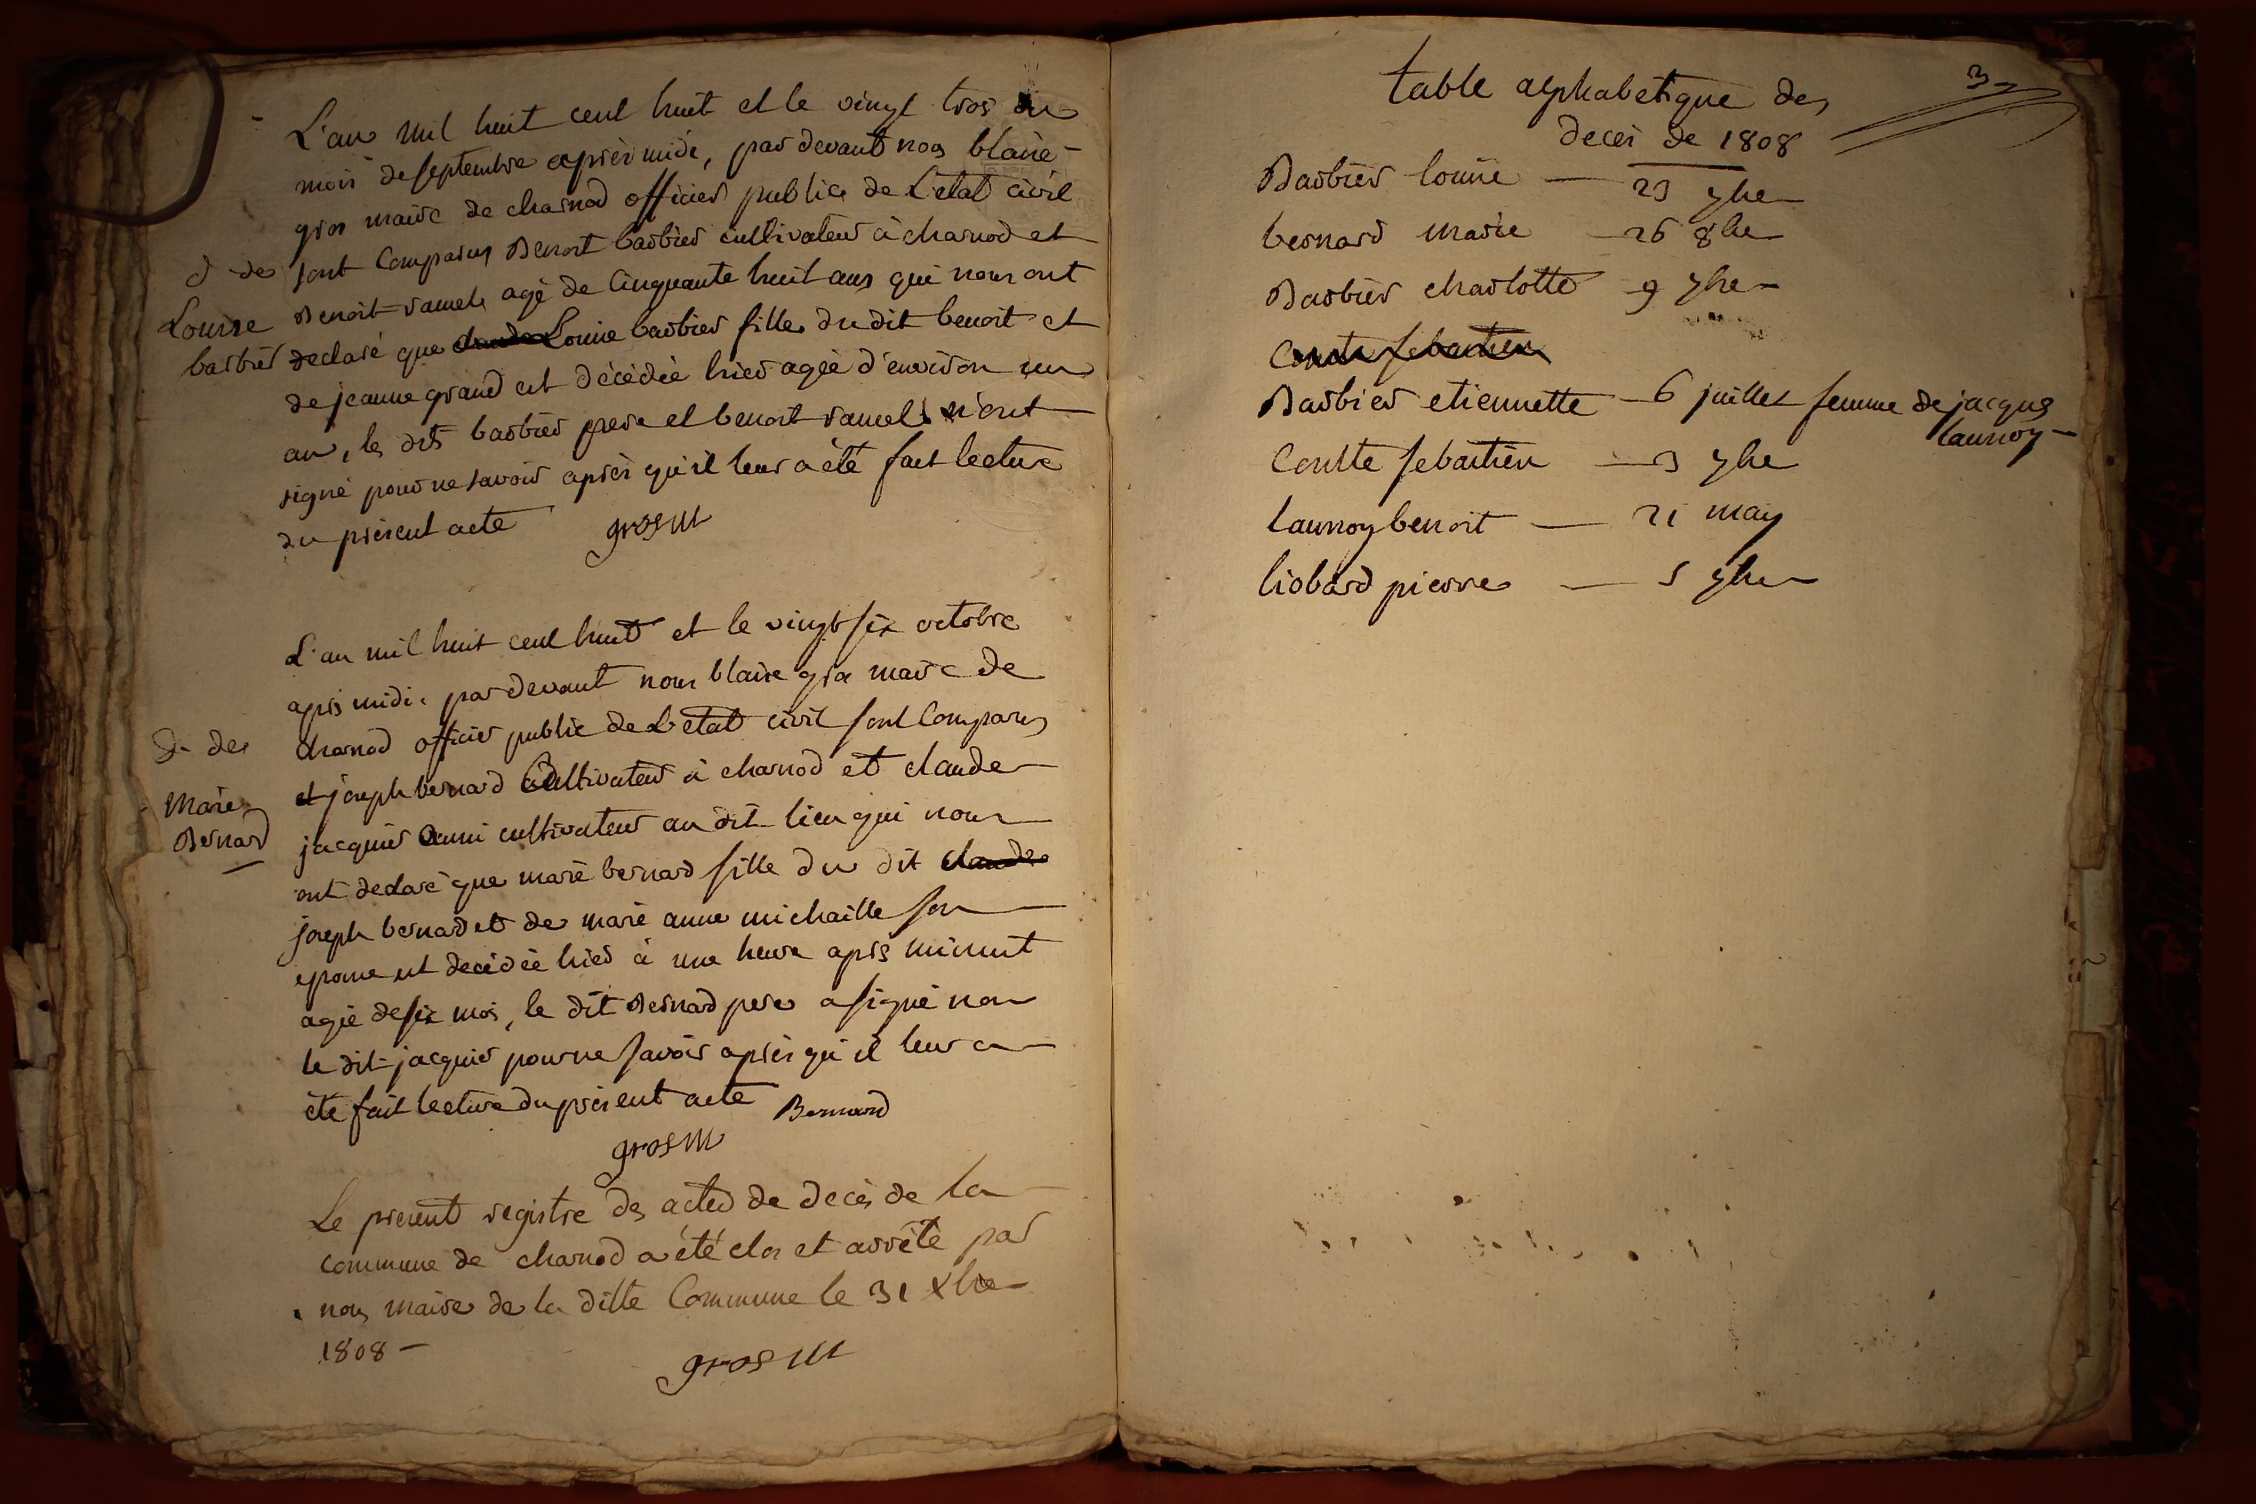 L'an mil huit cent huit et le vingt trois du
mois de septembre après midi, par devant nous blaise
gros maire de charnod officier public de L'etat civil
sont Comparus Benoit barbier cultivateur à charnod et
Benoit ramel agé de Cinquante huit ans qui nous ont
declaré que Louise barbier fille du dit benoit et
de jeanne grand est décédée hier agée d'environ un
an, les dits barbier pere et benoit ramel n'ont
signé pour ne savoir après qu'il leur a été fait lecture
du présent acte
gros m
d. de
Louise
barbier
L'an mil huit cent huit et le vingt six octobre
après midi. par devant nous blaise gros maire de
charnod officier public de L'etat civil sont Comparus
et joseph bernard Cultivateur à charnod et claude
jacquier aussi cultivateur au dit lieu qui nous
ont declaré que marie bernard fille du dit claude
joseph bernard et de marie anne michaille son
epouse est decédée hier à une heure après minuit
agée de six mois, le dit Bernard pere a signé non
le dit jacquier pour ne savoir après qu'il leur a
été fait lecture du présent acte Bernard
gros m
d. de
Marie
Bernard
Le présent registre des actes de decès de la
commune de charnod a été clos et arrêté par
nous maire de la ditte Commune le 31 Xbre
1808 -
gros m
table alphabetique des
decès de 1808
3
Barbier louise — 23 7bre
bernard marie — 26 8bre
Barbier charlotte — 9 7bre
Coutte sebastien
Barbier etiennette — 6 juillet femme de jacques
launoy
Coutte sebastien — 3 7bre
launoy benoit — 21 may
liobard pierre — 5 7bre